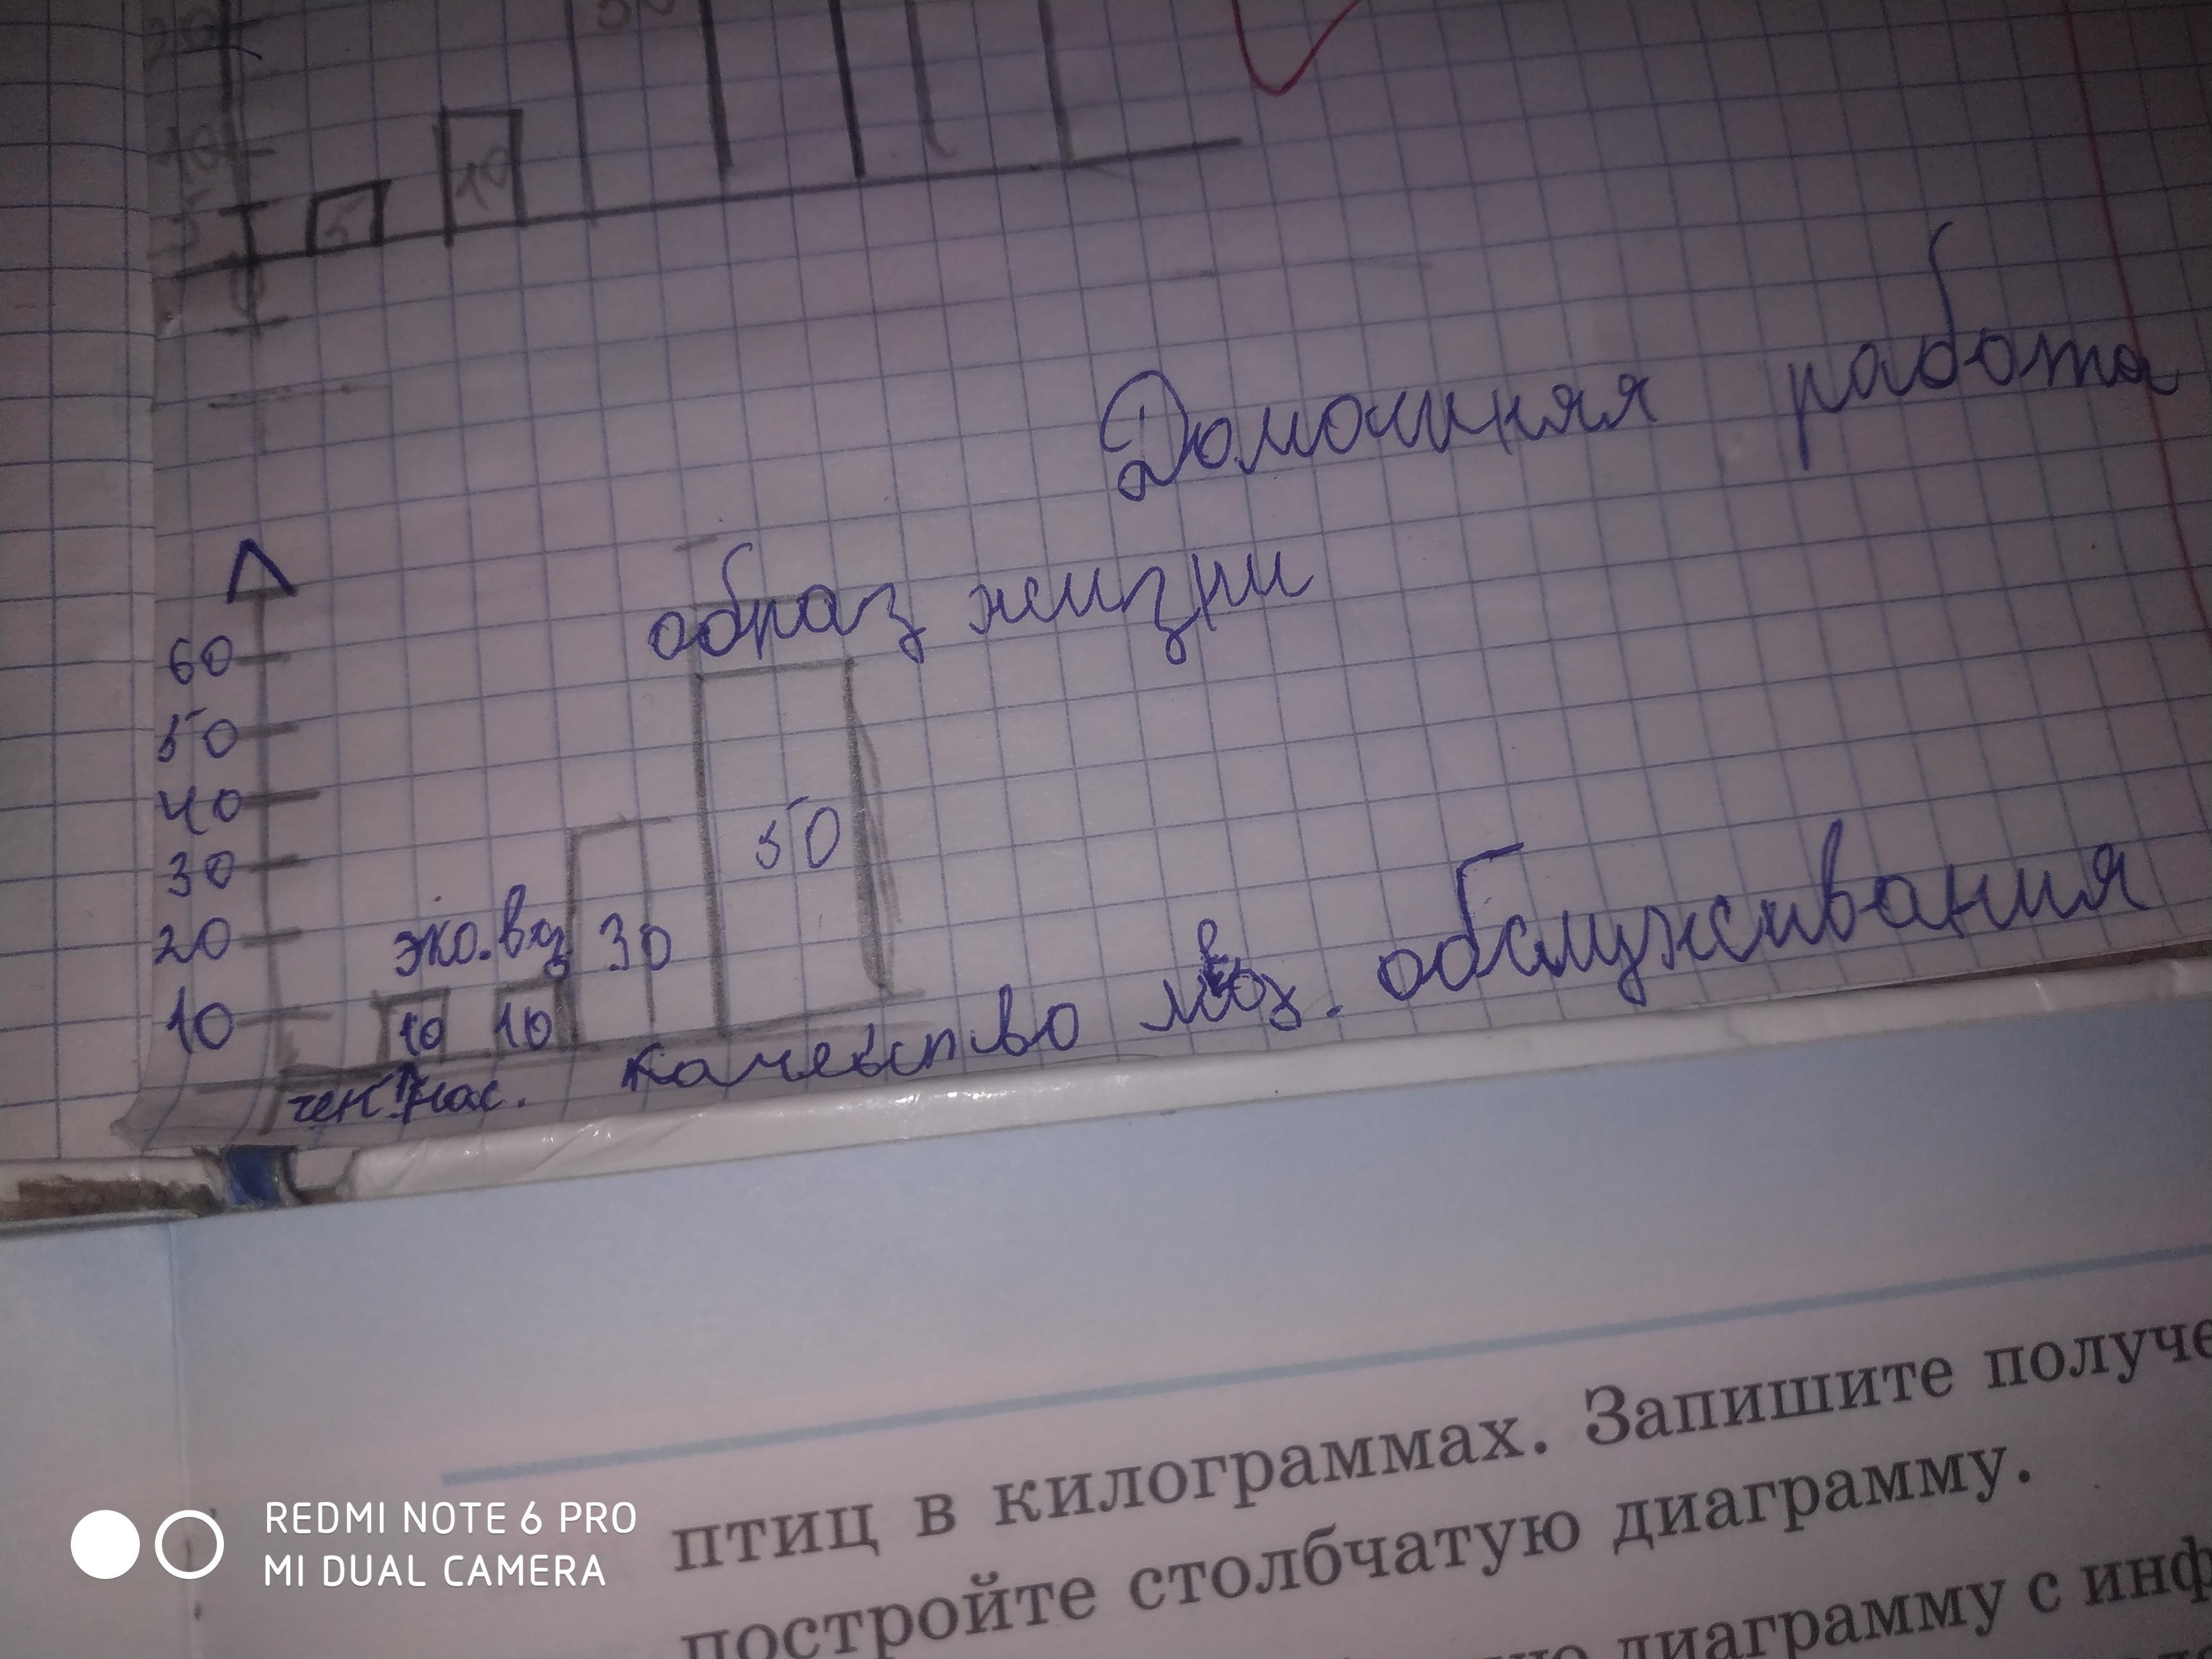 10
5
5
10
Домашняя работа
образ жизни
60
50
40
30
20
10
50
эко. воз
30
10
10
ген. нас.
качество мед. обслуживания
птиц в килограммах. Запишите получе
постройте столбчатую диаграмму.
диаграмму с инф
REDMI NOTE 6 PRO
MI DUAL CAMERA